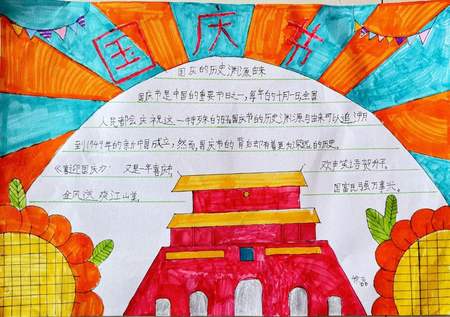 国庆节
国庆的历史渊源由来
国庆节是中国的重要节日之一，每年的十月一日，全国
人民都会庆祝这一特殊的日国庆节的历史渊源与由来可以追溯
到1949年的新中国成立，然而，国庆节的背后却有着更为深远的历史。
《喜迎国庆》 又是一年喜庆节 欢声笑语贺升平。
金风送 江山美 国富民强万事兴。